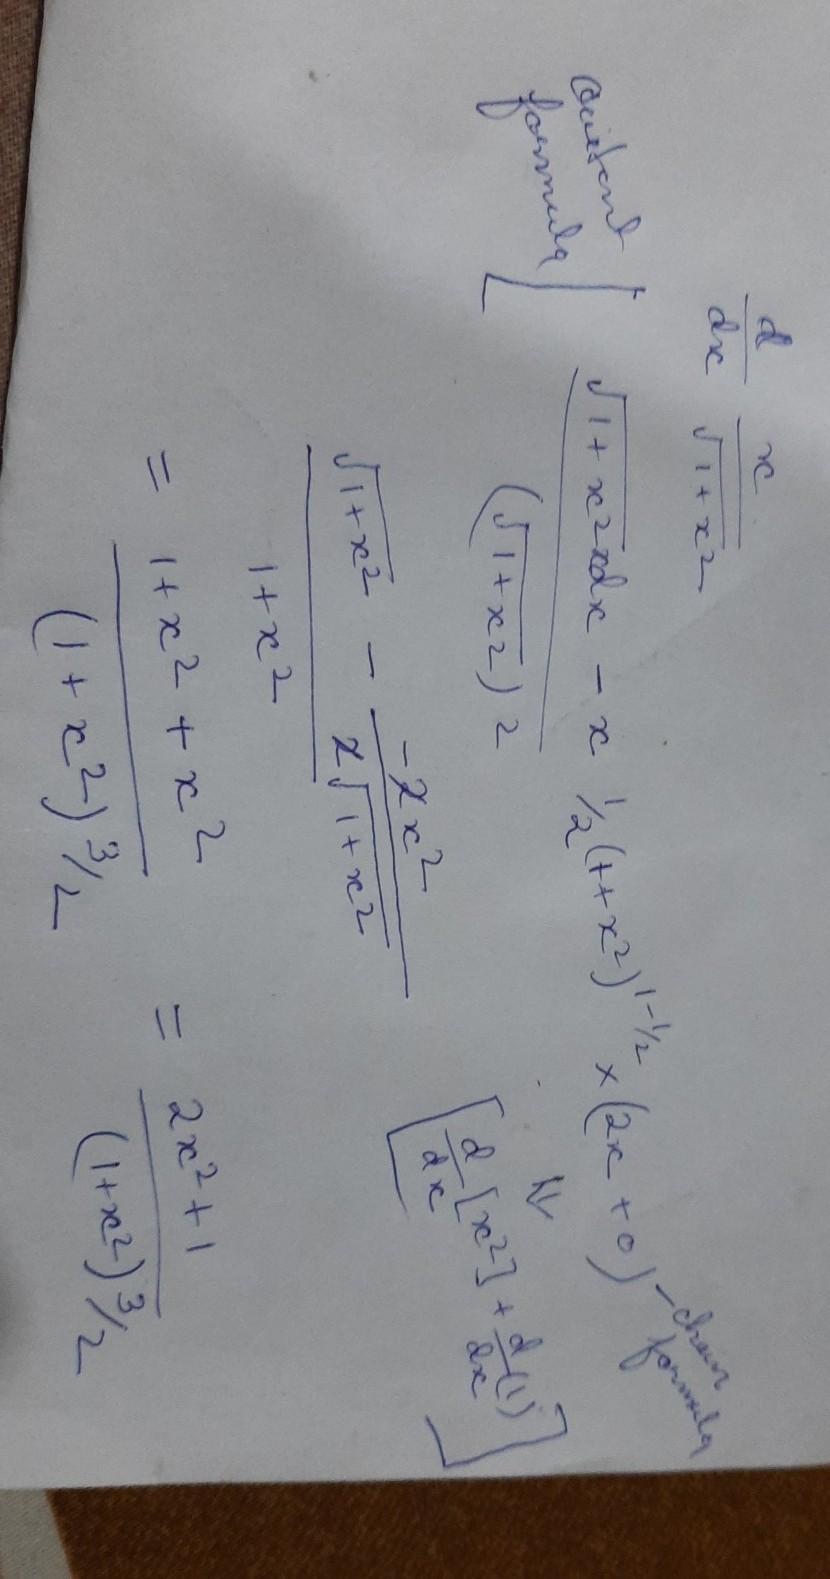 d/dx x/√(1+x²)
Quotent formula [ (√(1+x²) xdx - x ½(1+x²)^(1-½) × (2x + 0))/(√(1+x²))² - chain formula
⇓
[d/dx [x²] + d/dx (1)]
(√(1+x²) - (-2x²)/(2√(1+x²)))/(1+x²)
= (1+x² + x²)/(1+x²)^(3/2) = (2x²+1)/(1+x²)^(3/2)